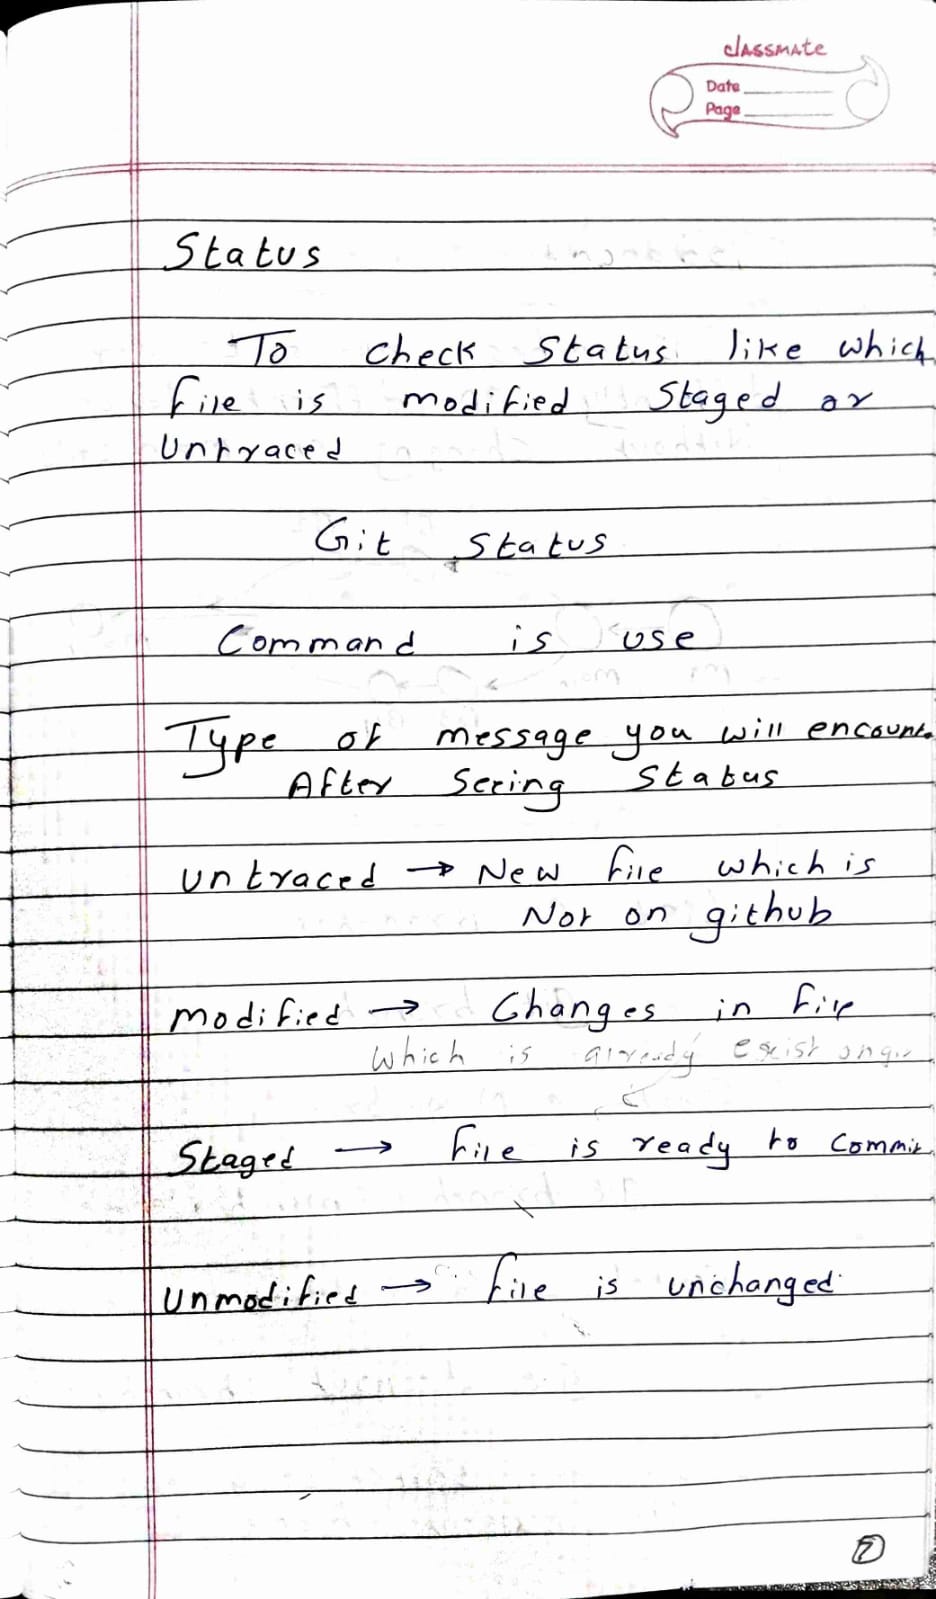 classmate
Date
Page
Status
To check Status like which
file is modified Staged or
Untraced
Git Status
Command is use
Type of message you will encount
After Seeing Status
Untraced → New file which is
Not on github
modified → Changes in file
which is already exist on
Staged → file is ready to Commit
Unmodified → file is unchanged
7